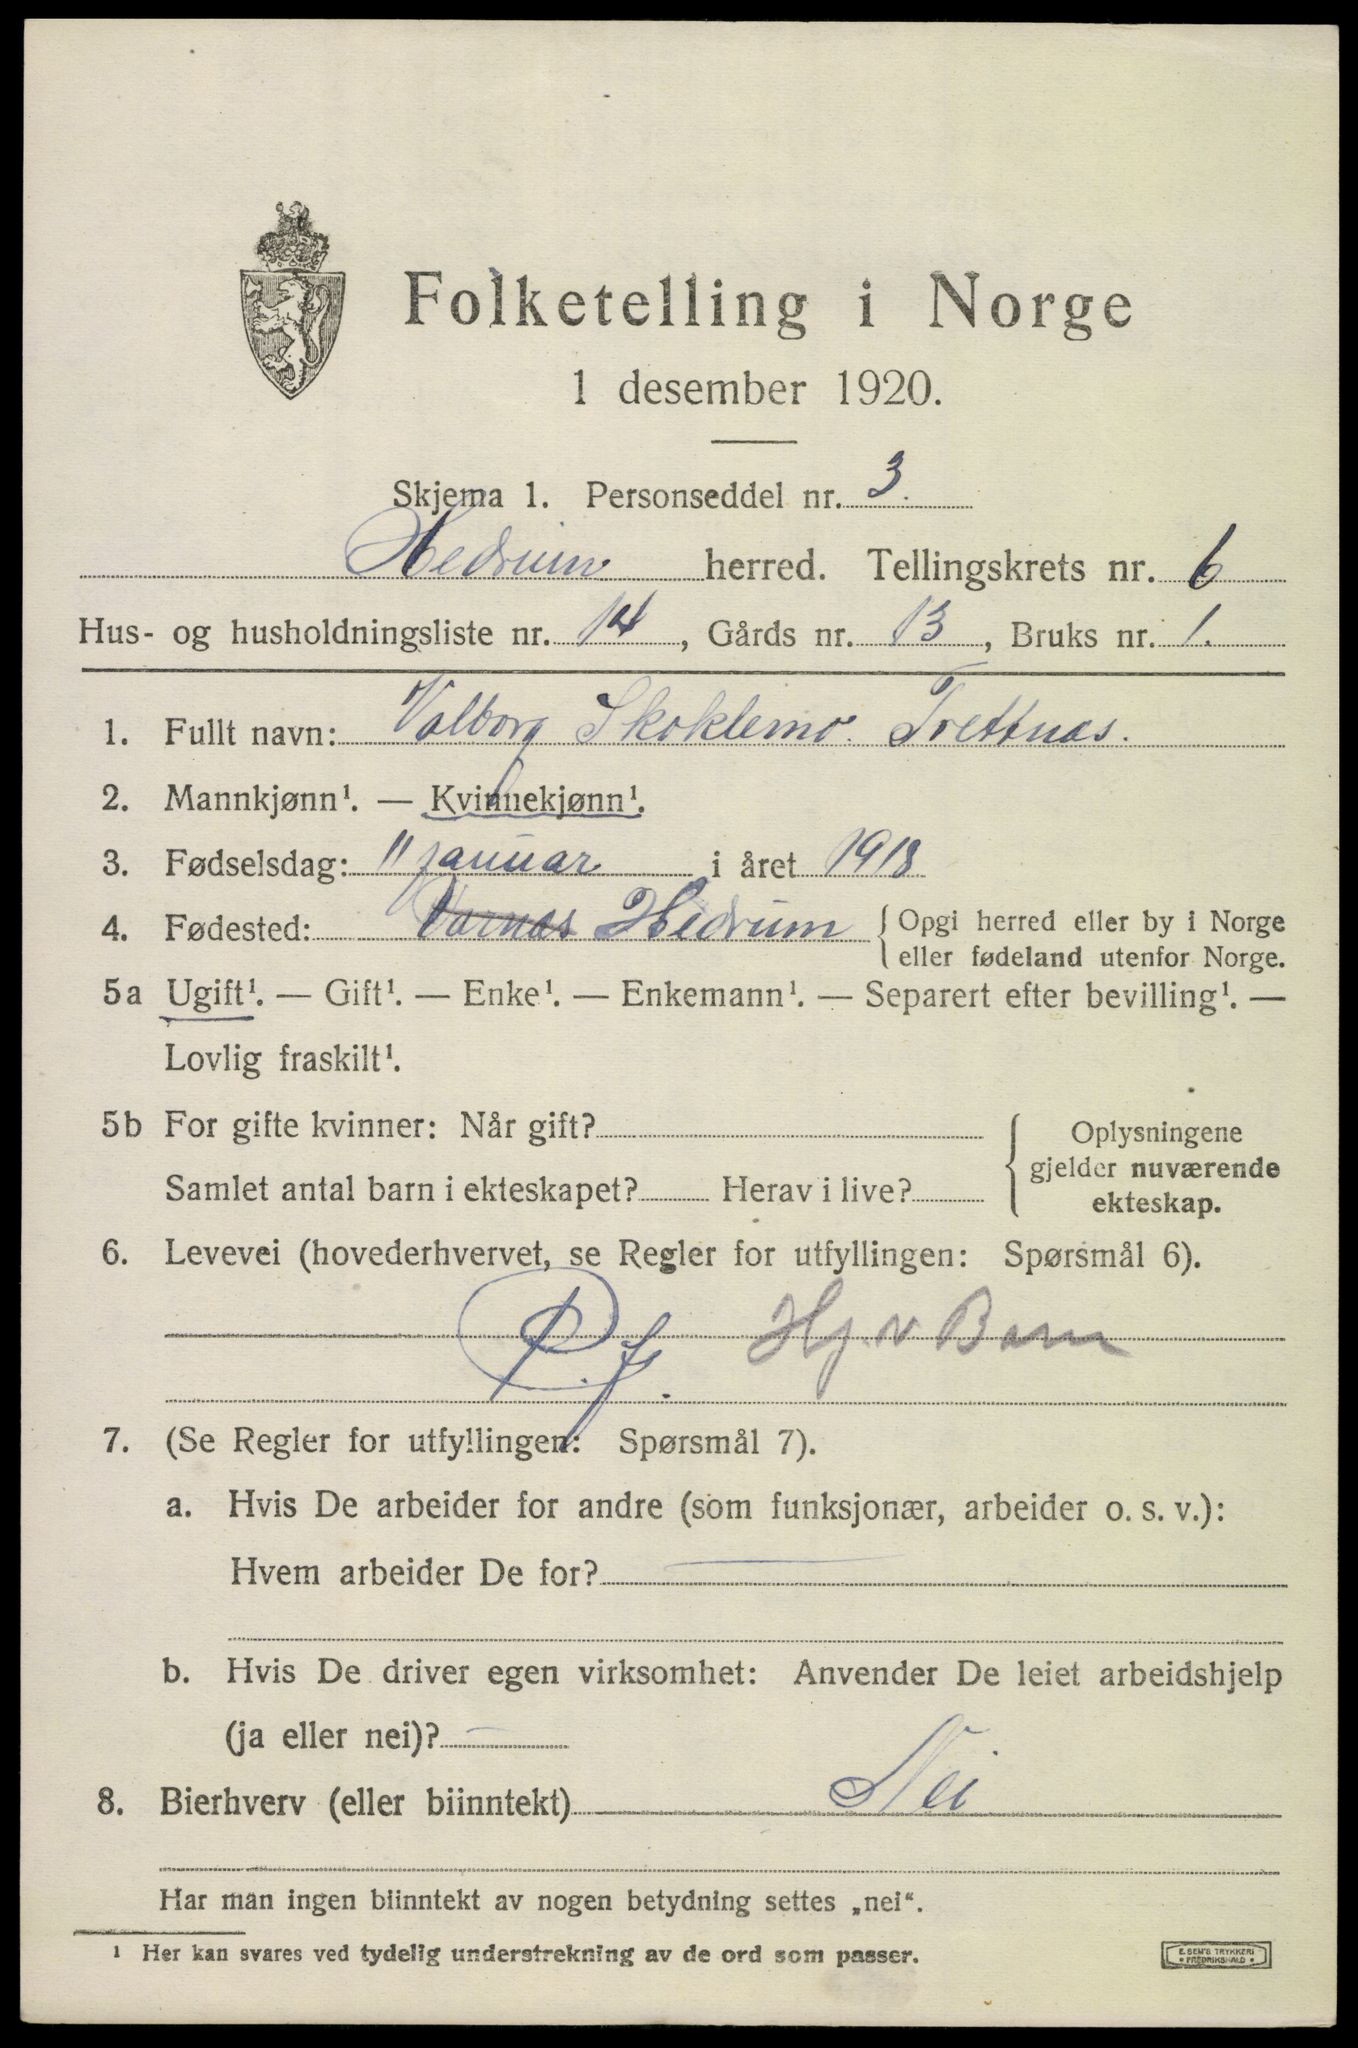 Folketelling i Norge
1 desember 1920.
Skjema 1. Personseddel nr. 3.
Hedrum herred. Tellingskrets nr. 6
Hus- og husholdningsliste nr. 14, Gårds nr. 13, Bruks nr. 1.
1. Fullt navn: Valborg Skoklemo Trettnes.
2. Mannkjønn¹. — Kvinnekjønn¹.
3. Fødselsdag: 11 januar i året 1918
4. Fødested: Varnæs Hedrum { Opgi herred eller by i Norge
eller fødeland utenfor Norge.
5a Ugift¹. — Gift¹. — Enke¹. — Enkemann¹. — Separert efter bevilling¹. —
Lovlig fraskilt¹.
5b For gifte kvinner: Når gift?
Samlet antal barn i ekteskapet? Herav i live?
Oplysningene
gjelder nuværende
ekteskap.
6. Levevei (hovederhvervet, se Regler for utfyllingen: Spørsmål 6).
P.f. Hj. v Barn
7. (Se Regler for utfyllingen: Spørsmål 7).
a. Hvis De arbeider for andre (som funksjonær, arbeider o. s. v.):
Hvem arbeider De for? —
b. Hvis De driver egen virksomhet: Anvender De leiet arbeidshjelp
(ja eller nei)? —
8. Bierhverv (eller biinntekt) Nei
Har man ingen biinntekt av nogen betydning settes „nei“.
¹ Her kan svares ved tydelig understrekning av de ord som passer.
E. SEM'S TRYKKERI
• FREDRIKSHALD •